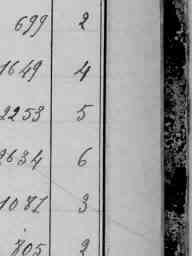 699 2
1649 4
2253 5
2634 6
1081 3
805 2